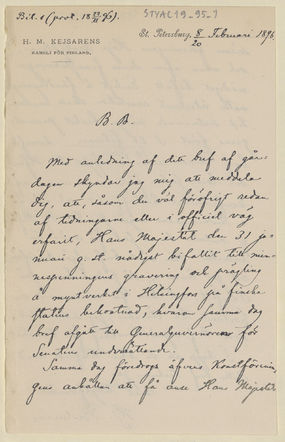 STYAC19_95_1
Bil. 1 (prot. 18 /96).
H. M. KEJSARENS
KANSLI FÖR FINLAND.
St. Petersburg, 8/20 Februari 1896.
B. B.
Med anledning af ditt bref af går-
dagen skyndar jag mig att meddela
dig, att, såsom du väl föröfrigt redan
af tidningarne eller i officiel väg
erfarit, Hans Majestät den 31 ja-
nuari g. st. nådigst bifallit till min-
nespenningens gravering och prägling
å myntverket i Helsingfors på finska
statens bekostnad, hvarom samma dag
bref afgått till Generalguvernören för
Senatens underrättande.
Samma dag föredrogs äfvens Konstförenin-
gens anhållan att få anse Hans Majestät